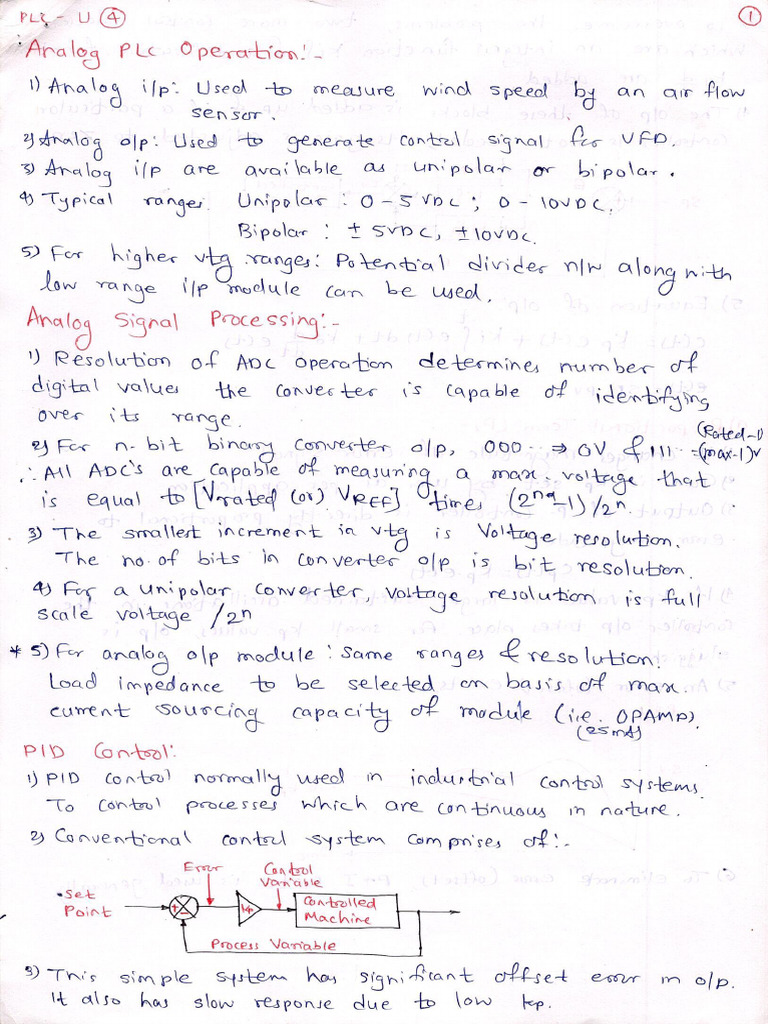 PLC - U ④ ①
Analog PLC Operation:-
1) Analog i/p: Used to measure wind speed by an air flow
sensor.
2) Analog o/p: Used to generate control signal for VFD.
3) Analog i/p are available as unipolar or bipolar.
4) Typical ranges. Unipolar : 0-5 VDC ; 0-10VDC.
Bipolar : ± 5VDC, ±10VDC.
5) For higher vtg ranges: Potential divider n/w along with
low range i/p module can be used.
Analog Signal Processing:-
1) Resolution of ADC operation determines number of
digital values the converter is capable of identifying
over its range.
2) For n-bit binary converter o/p, 000 ⇒ 0V & 111 = (Rated-1)
(max-1)V
∴ All ADC's are capable of measuring a max. voltage that
is equal to [Vrated (or) VREF] times (2^n-1)/2^n.
3) The smallest increment in vtg is Voltage resolution.
The no. of bits in converter o/p is bit resolution.
4) For a unipolar converter, voltage resolution is full
scale voltage /2^n
* 5) For analog o/p module : Same ranges & resolution.
Load impedance to be selected on basis of max.
current sourcing capacity of module (i.e. OPAMP).
(25mA)
PID Control:
1) PID control normally used in industrial control systems.
To control processes which are continuous in nature.
2) Conventional control system comprises of:-
Error Control
Variable
Set
Point
+
-
Kp
Controlled
Machine
Process Variable
3) This simple system has significant offset error in o/p.
It also has slow response due to low kp.